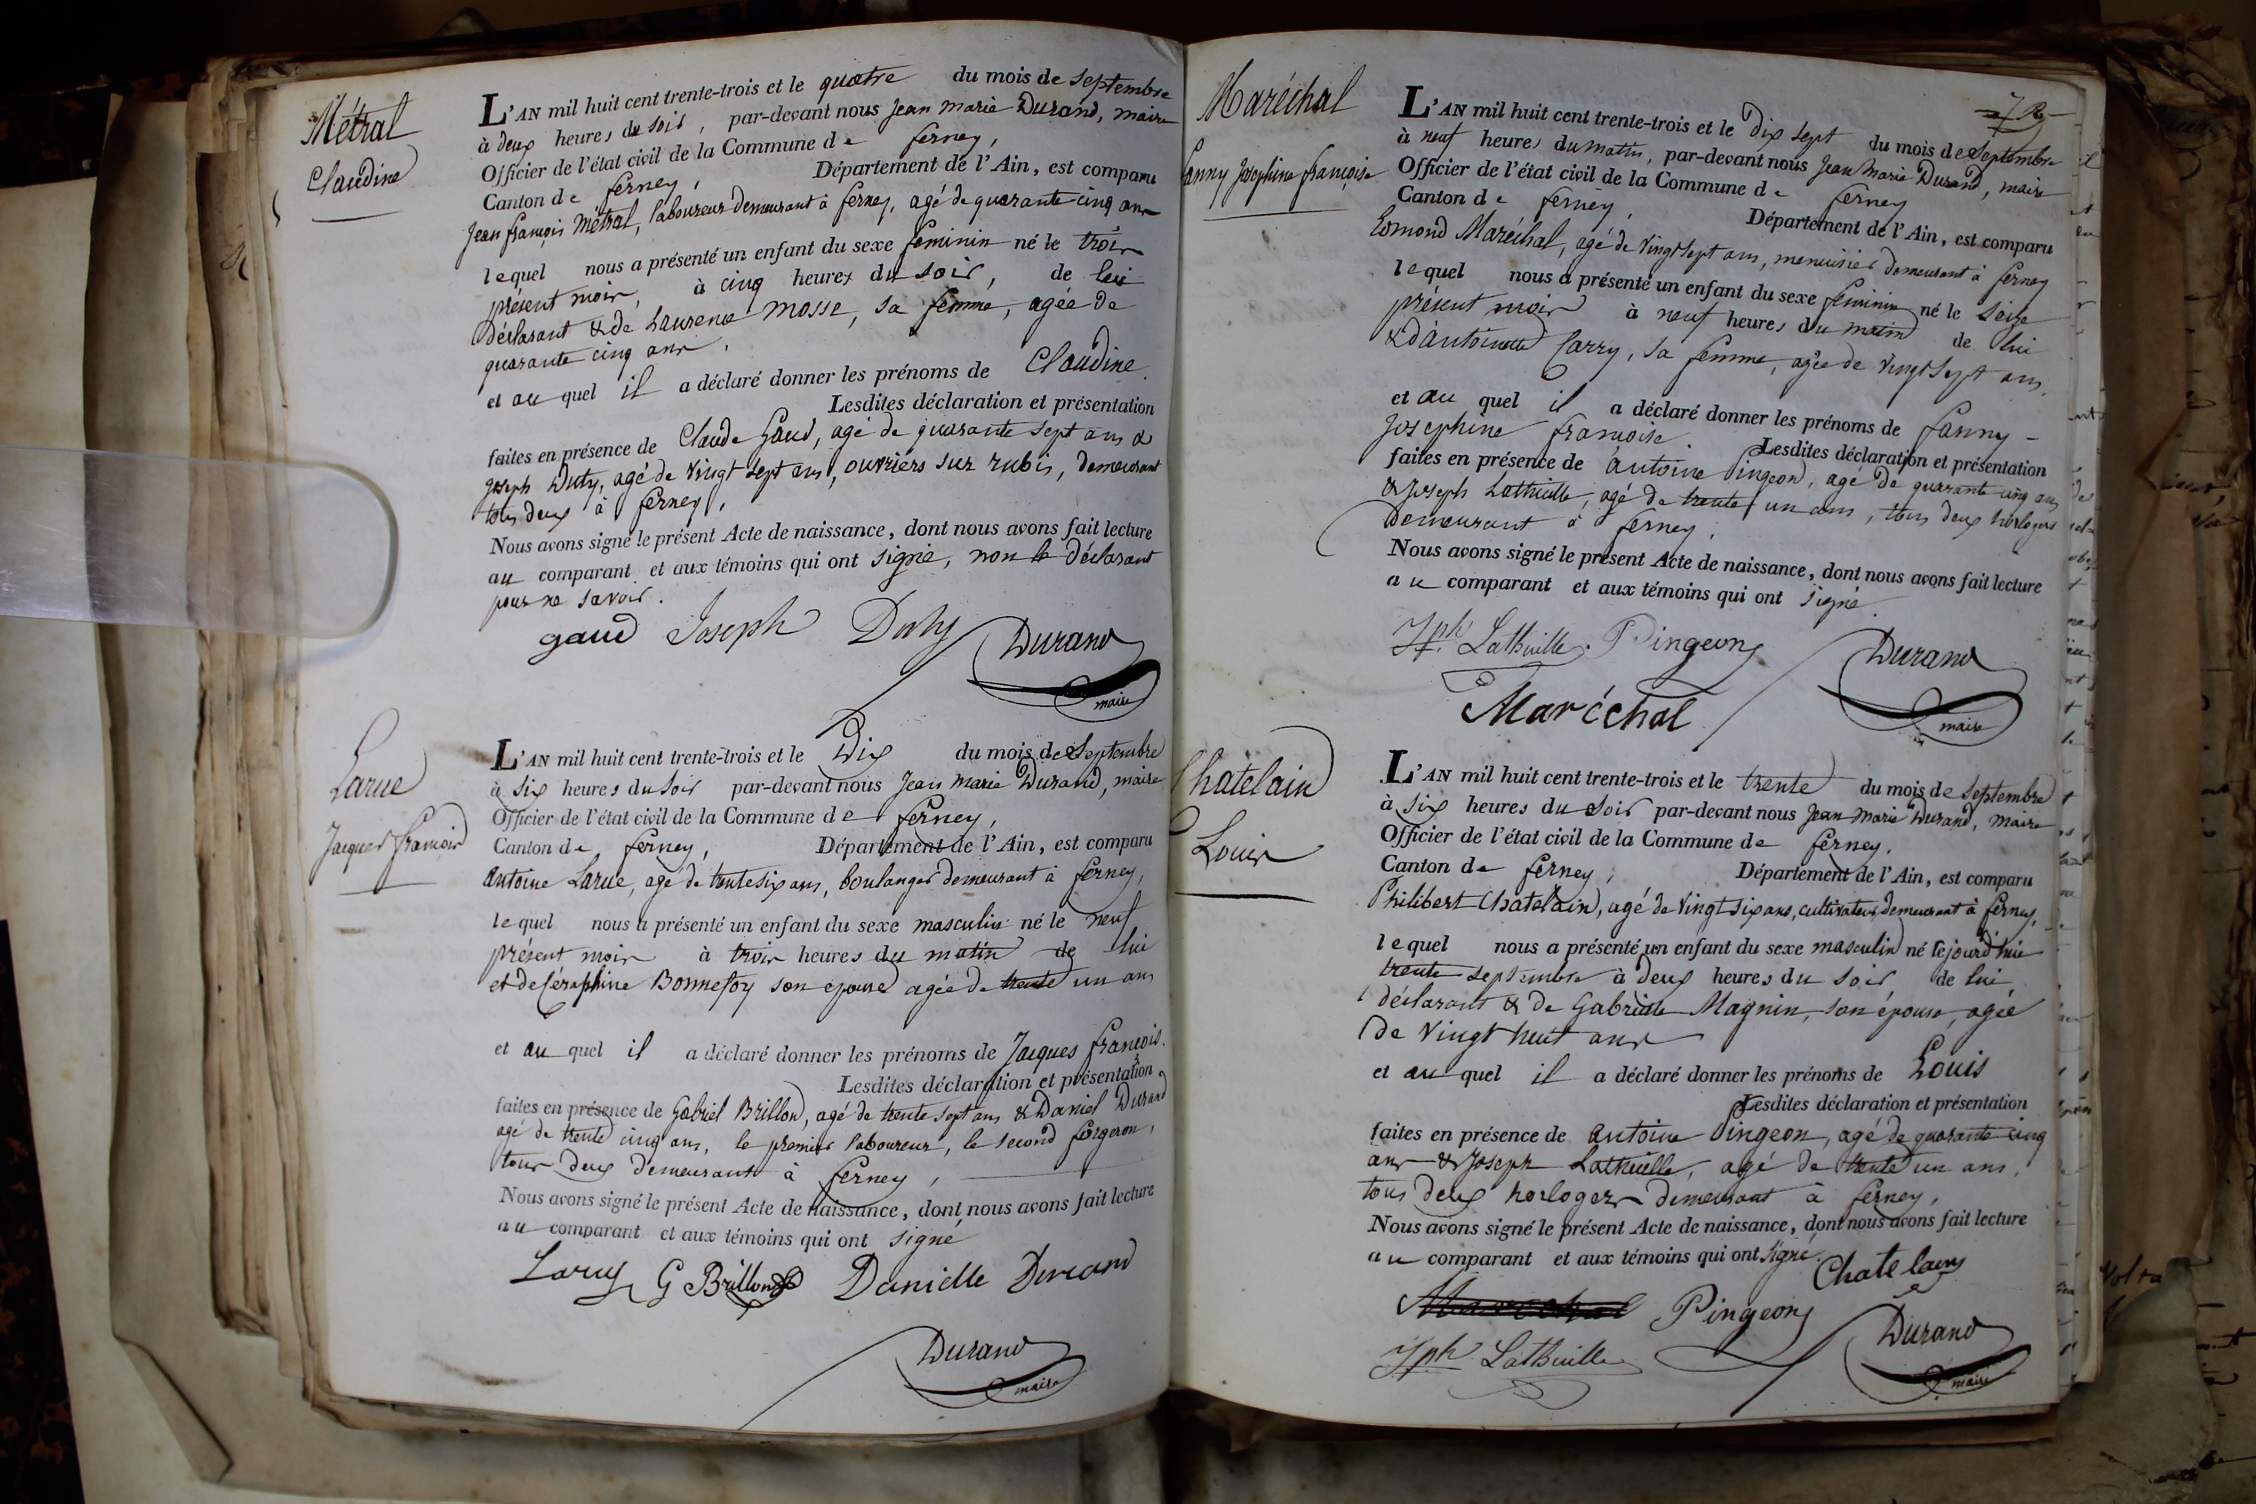 Métral
Claudine
L'AN mil huit cent trente-trois et le quatre du mois de septembre
à deux heures du soir, par-devant nous Jean Marie Durand, maire
Officier de l'état civil de la Commune de ferney,
Canton de ferney, Département de l'Ain, est comparu
Jean françois Métral, laboureur demeurant à ferney, agé de quarante cinq ans
lequel nous a présenté un enfant du sexe feminin né le trois
présent mois, à cinq heures du soir, de lui
déclarant & de Laurence Mosse, sa femme, agée de
quarante cinq ans,
et au quel il a déclaré donner les prénoms de Claudine.
Lesdites déclaration et présentation
faites en présence de Claude Gaud, agé de quarante sept ans &
Joseph Duty, agé de vingt sept ans, ouvriers sur rubis, demeurant
tous deux à ferney,
Nous avons signé le présent Acte de naissance, dont nous avons fait lecture
au comparant et aux témoins qui ont signé, non le déclarant
pour ne savoir.
gaud Joseph Duty Durand
maire
Larue
Jacques françois
L'AN mil huit cent trente-trois et le Dix du mois de Septembre
à six heures du soir par-devant nous Jean Marie Durand, maire
Officier de l'état civil de la Commune de ferney,
Canton de ferney, Département de l'Ain, est comparu
Antoine Larue, agé de trente six ans, boulanger demeurant à ferney,
lequel nous a présenté un enfant du sexe masculin né le neuf
présent mois à trois heures du matin de lui
et de Séraphine Bonnefoy son épouse agée de trente un ans
et au quel il a déclaré donner les prénoms de Jacques françois.
Lesdites déclaration et présentation
faites en présence de Gabriel Brillon, agé de trente sept ans & Daniel Durand
agé de trente cinq ans, le premier laboureur, le second forgeron,
tous deux demeurant à ferney,
Nous avons signé le présent Acte de naissance, dont nous avons fait lecture
au comparant et aux témoins qui ont signé
Larue G Brillon Danielle Durand
Durand
maire
Maréchal
fanny Josephine françoise
L'AN mil huit cent trente-trois et le Dix sept du mois de Septembre
à neuf heures du matin, par-devant nous Jean Marie Durand, maire
Officier de l'état civil de la Commune de ferney
Canton de ferney, Département de l'Ain, est comparu
Edmond Maréchal, agé de vingt sept ans, menuisier demeurant à ferney
lequel nous a présenté un enfant du sexe feminin né le seize
présent mois à neuf heures du matin de lui
& d'antoinette Carry, sa femme, agée de vingt sept ans,
et au quel il a déclaré donner les prénoms de fanny -
Josephine françoise. Lesdites déclaration et présentation
faites en présence de antoine Pingeon, agé de quarante cinq ans
& Joseph Lathuille, agé de trente un ans, tous deux horlogers
demeurant à ferney,
Nous avons signé le présent Acte de naissance, dont nous avons fait lecture
au comparant et aux témoins qui ont signé
Jph. Lathuille. Pingeon Durand
Maréchal maire
Chatelain
Louis
L'AN mil huit cent trente-trois et le trente du mois de septembre
à six heures du soir par-devant nous Jean Marie Durand, maire
Officier de l'état civil de la Commune de ferney,
Canton de ferney, Département de l'Ain, est comparu
Philibert Chatelain, agé de vingt six ans, cultivateur demeurant à ferney,
lequel nous a présenté un enfant du sexe masculin né cejourd'hui
trente septembre à deux heures du soir de lui
déclarant & de Gabrielle Magnin, son épouse, agée
de vingt huit ans
et au quel il a déclaré donner les prénoms de Louis
Lesdites déclaration et présentation
faites en présence de antoine Pingeon, agé de quarante cinq
ans & Joseph Lathuille, agé de trente un ans,
tous deux horlogers demeurant à ferney,
Nous avons signé le présent Acte de naissance, dont nous avons fait lecture
au comparant et aux témoins qui ont signé.
Chatelain
Marechal Pingeon Durand
Jph Lathuille maire